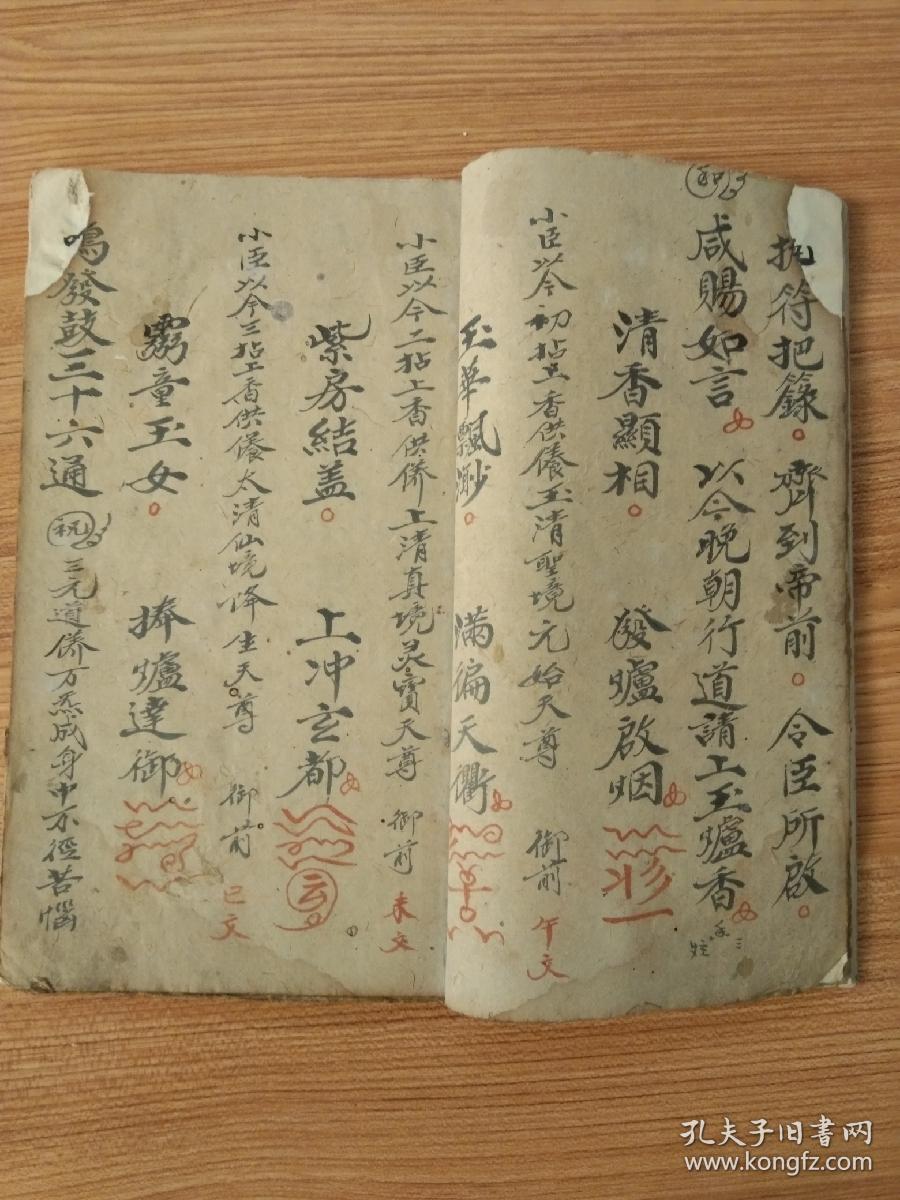 执符把籙。齊到帝前。令臣所啟。
咸賜如言 以今晚朝行道請上玉爐香
清香顯相。 發爐啟烟
小臣以今初拈上香供儀玉清聖境元始天尊 御前 午文
玉華飄渺。 满徧天衢
小臣以今二拈上香供侨上清真境灵寳天尊 御前 未文
紫房結盖。 上冲玄都
小臣以今三拈上香供儀太清仙境降生天尊 御前 巳文
童玉女。 捧爐達御
鳴發鼓三十六通 祝 三元道侨万炁成身中不徑苦惱
孔夫子旧书网
www.kongfz.com